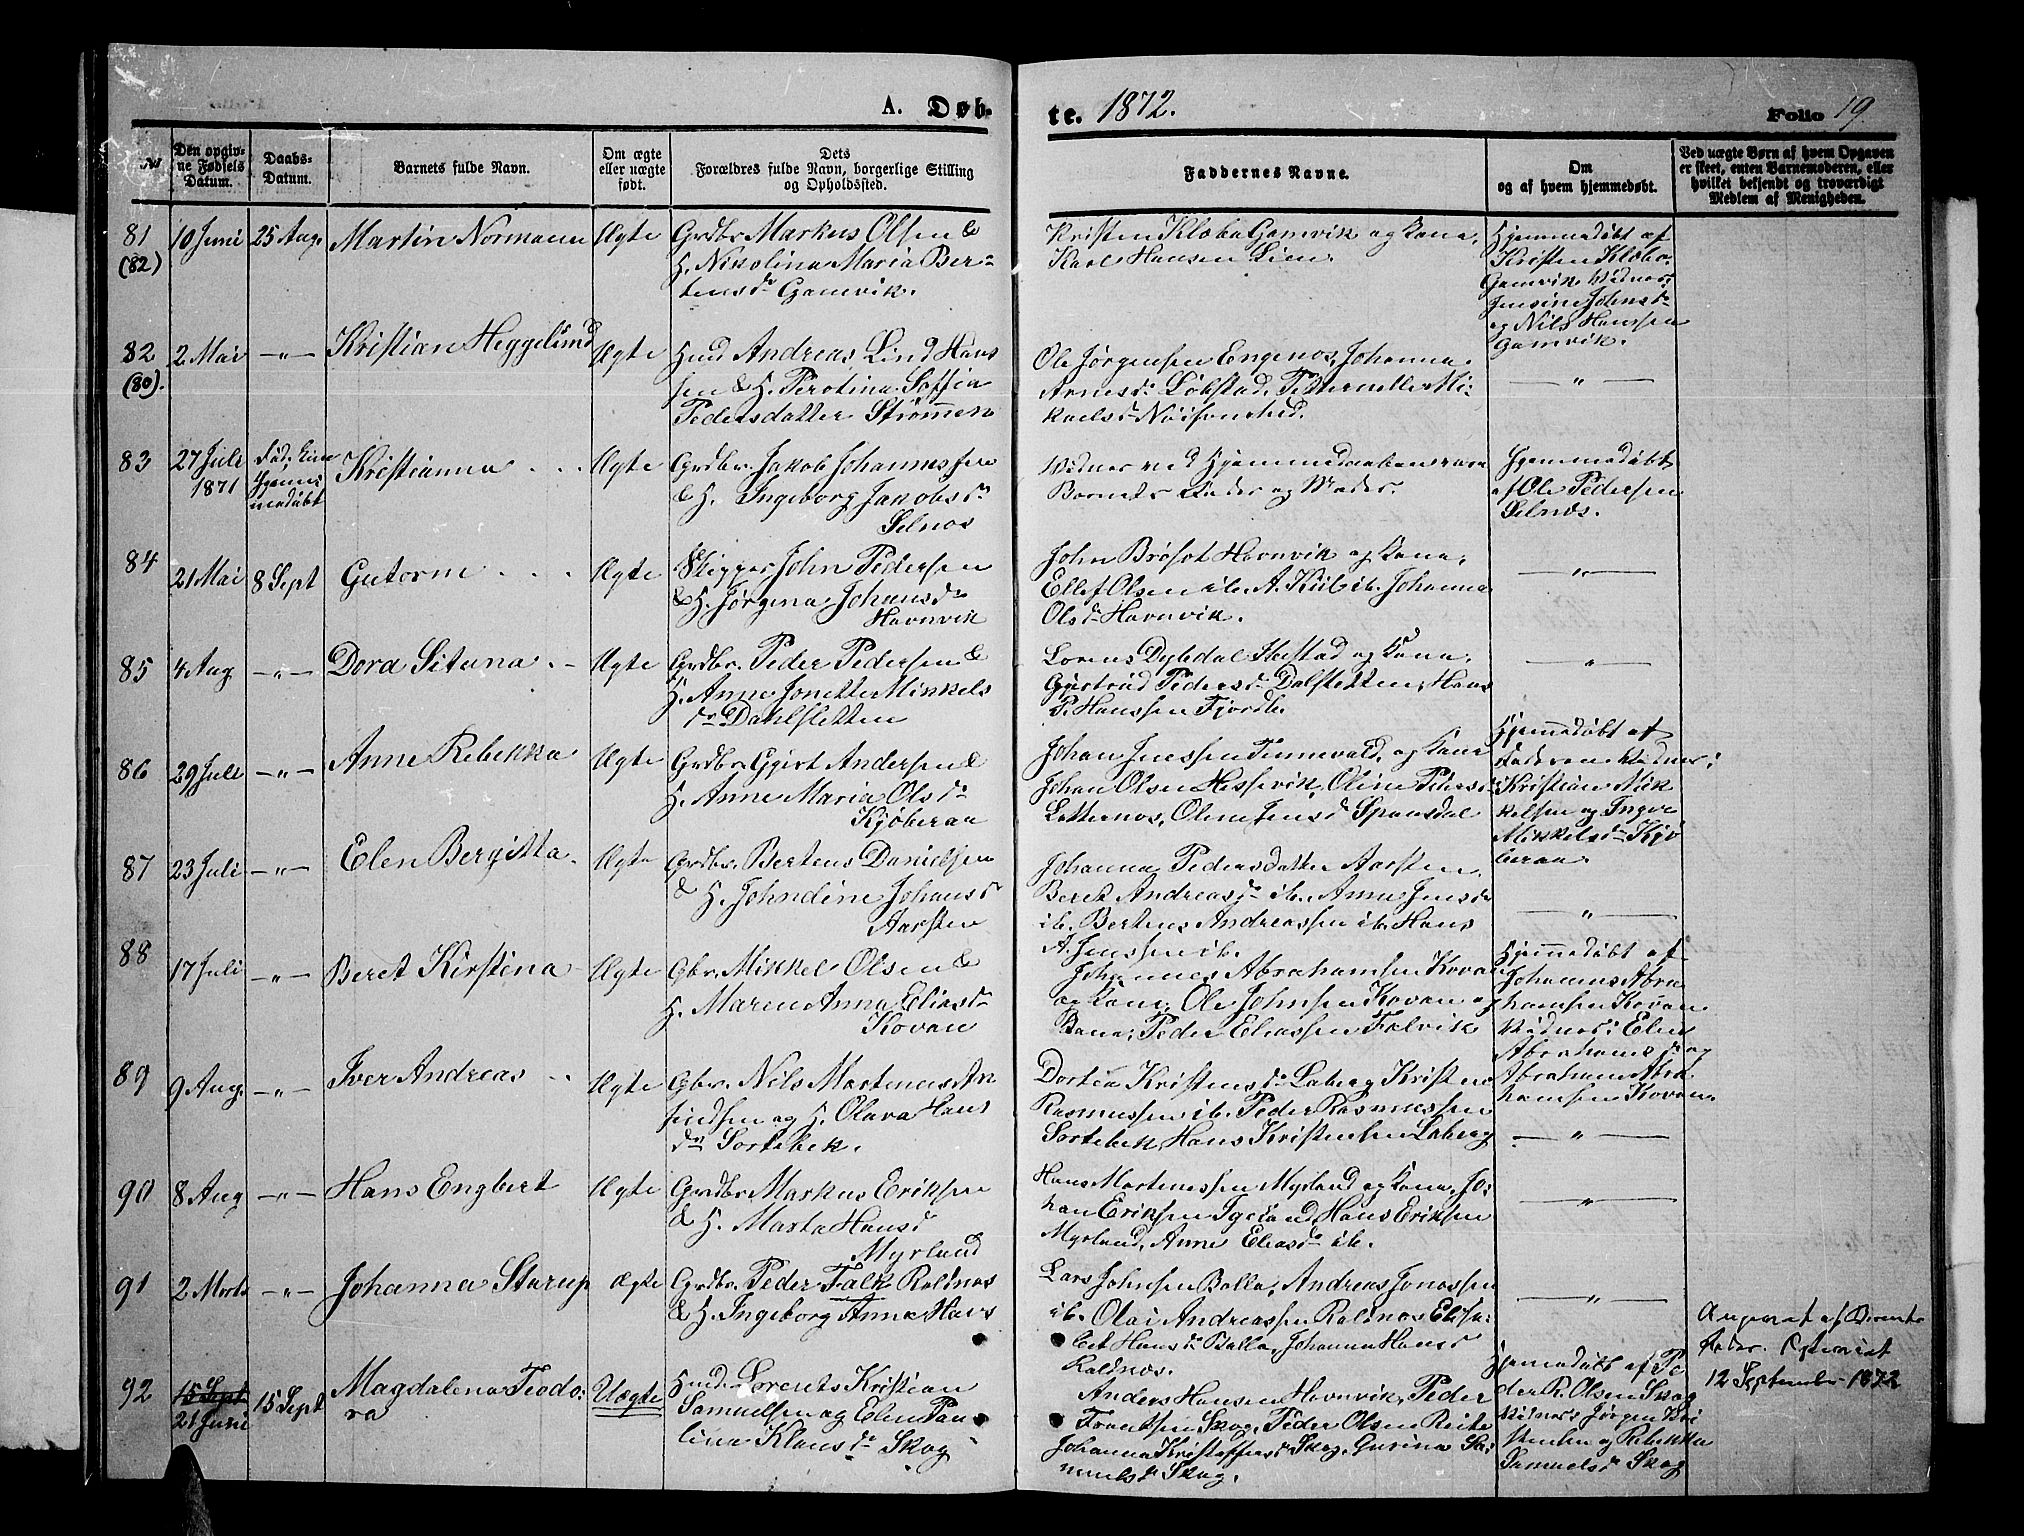 A. Døb-
te. 1872.
Folio 19.
No
Den opgiv-
ne Fødsels
Datum.
Daabs-
Datum.
Barnets fulde Navn.
Om ægte
eller uægte
født.
Dets
Forældres fulde Navn, borgerlige Stilling
og Opholdssted.
Faddernes Navne.
Om
og af hvem hjemmedøbt.
Ved uægte Børn af hvem Opgaven
er skeet, enten Barnemoderen, eller
hvilket bekjendt og troværdigt
Medlem af Menigheden.
81
(82)
10 Juni
25 Aug.
Martin Normann
Ægte
Grdbr. Markus Olsen &
H. Nikolina Maria Ber-
tensdr Gamvik.
Kristen Klæbo Gamvik og Kone,
Karl Hansen Lien.
Hjemmedøbt af
Kristen Klæbo
Gamvik. Vidner:
Jensine Johnsdr
og Nils Hanssen
Gamvik.
82
(80).
2 Mai
—"—
Kristian Heggelund
Ægte
Hmd Andreas Lind Hans
sen & H. Perolina Soffia
Pedersdatter Strømmen
Ole Jørgensen Engenos, Johanna
Arnesdr Løkstad, Petternelle Mi-
kaelsdr Nøisomhed.
—"—
83
27 Juli
1871
Kristianna
Ægte
Grdbr. Jakob Johannessen
& H. Ingeborg Jakobsdr
Selnos
Vidner ved Hjemmedaaben vare
Barnets Fader og Moder.
Hjemmedøbt
af Ole Pedersen
Selnæs.
84
21 Mai
8 Sept
Gutorm
Ægte
Skipper John Pedersen
& H. Jørgina Johansdr
Havnvik
John Brosot Havnvik og Kone,
Ellef Olsen ib. A. Kiil ib. Johanna
Olsdr Havnvik.
—"—
85
4 Aug.
—"—
Dora Situna
Ægte
Grdbr. Peder Pedersen &
H. Anne Jonette Mikkels
dr Dahlsletten
Lorens Dybdal Ibestad og Kone,
Gjertrud Pedersdr Dalsletten, Hans
P. Hanssen Fjordb.
—"—
86
29 Juli
—"—
Anne Rebekka
Ægte
Grdbr. Gjert Andersen &
H. Anne Maria Olsdr
Kjøberaa
Johan Jenssen Tennevald, og Kone
Johan Olsen Hessevik, Oline Peders dr
Latternos, Oline Jensdr Spansdal
Hjemmedøbt af
Faderen Vidner:
Kristian Mik
kelsen og Ingve
Mikkelsdr Kjø
beraa.
87
23 Juli
—"—
Elen Bergitta
Ægte
Grdbr. Bertens Danielsen
& H. Johndine Johansdr
Aarsten
Johanna Pedersdatter Aarsten,
Beret Andreasdr ib. Anne Jensdr
ib. Bertens Andreassen ib. Hans
A. Jenssen ib.
—"—
88
17 Juli
—"—
Beret Kirstina
Ægte
Gbr. Mikkel Olsen &
H. Maren Anna Eliasdr
Kovan
Johannes Abrahamsen Kovan
og Kone; Ole Johnsen Kovan og
Kone; Peder Eliassen Folvik
Hjemmedøbt af
Johannes Abra
hamsen Kovan
Vidner: Elen
Abrahamsdr og
Abraham Abra
hamsen Kovan.
89
9 Aug.
—"—
Iver Andreas
Ægte
Gbr. Nils Martenus An
findsen og H. Olava Hans
dr Sortebek.
Dortea Kristensdr Laberg Kristen
Rasmussen ib. Peder Rasmussen
Sortebek, Hans Kristensen Laberg
—"—
90
8 Aug
—"—
Hans Engbert
Ægte
Grdbr. Markus Eriksen
& H. Marta Hansdr
Myrland
Hans Martenussen Myrland og Kone, Jo-
han Eriksen Tgeland, Hans Eriksen
Myrland, Anne Eliasdr ib.
—"—
91
2 Marts
—"—
Johanna Sturup
Ægte
Grdbr. Peder Falk Roldnos
& H. Ingeborg Anna Hans
Lars Johnsen Bolla, Andreas Jonassen
ib. Olai Andreassen Roldnos Elisa-
bet Hansdr Bolla, Johanna Hansdr
Roldnos.
—"—
92
15 Sept
21 Juni
15 Sept
Magdalena Teodo-
ra
Uægte
Hmd. Lorents Kristian
Samuelsen og Elen Pau
lina Klausdr Skog
Anders Hansen Havnvik, Peder
Frantsen Skog, Peder Olsen Reite
Johanna Kristoffersdr Skog, Gurina Sa-
muelsdr Skog.
Hjemmedøbt af Pe
der R. Olsen Skog
Vidner Jørgen Kri
stensen og Rebekka
Samuelsdr Skog
Angivet af Barnets
Fader.
12 September 1872